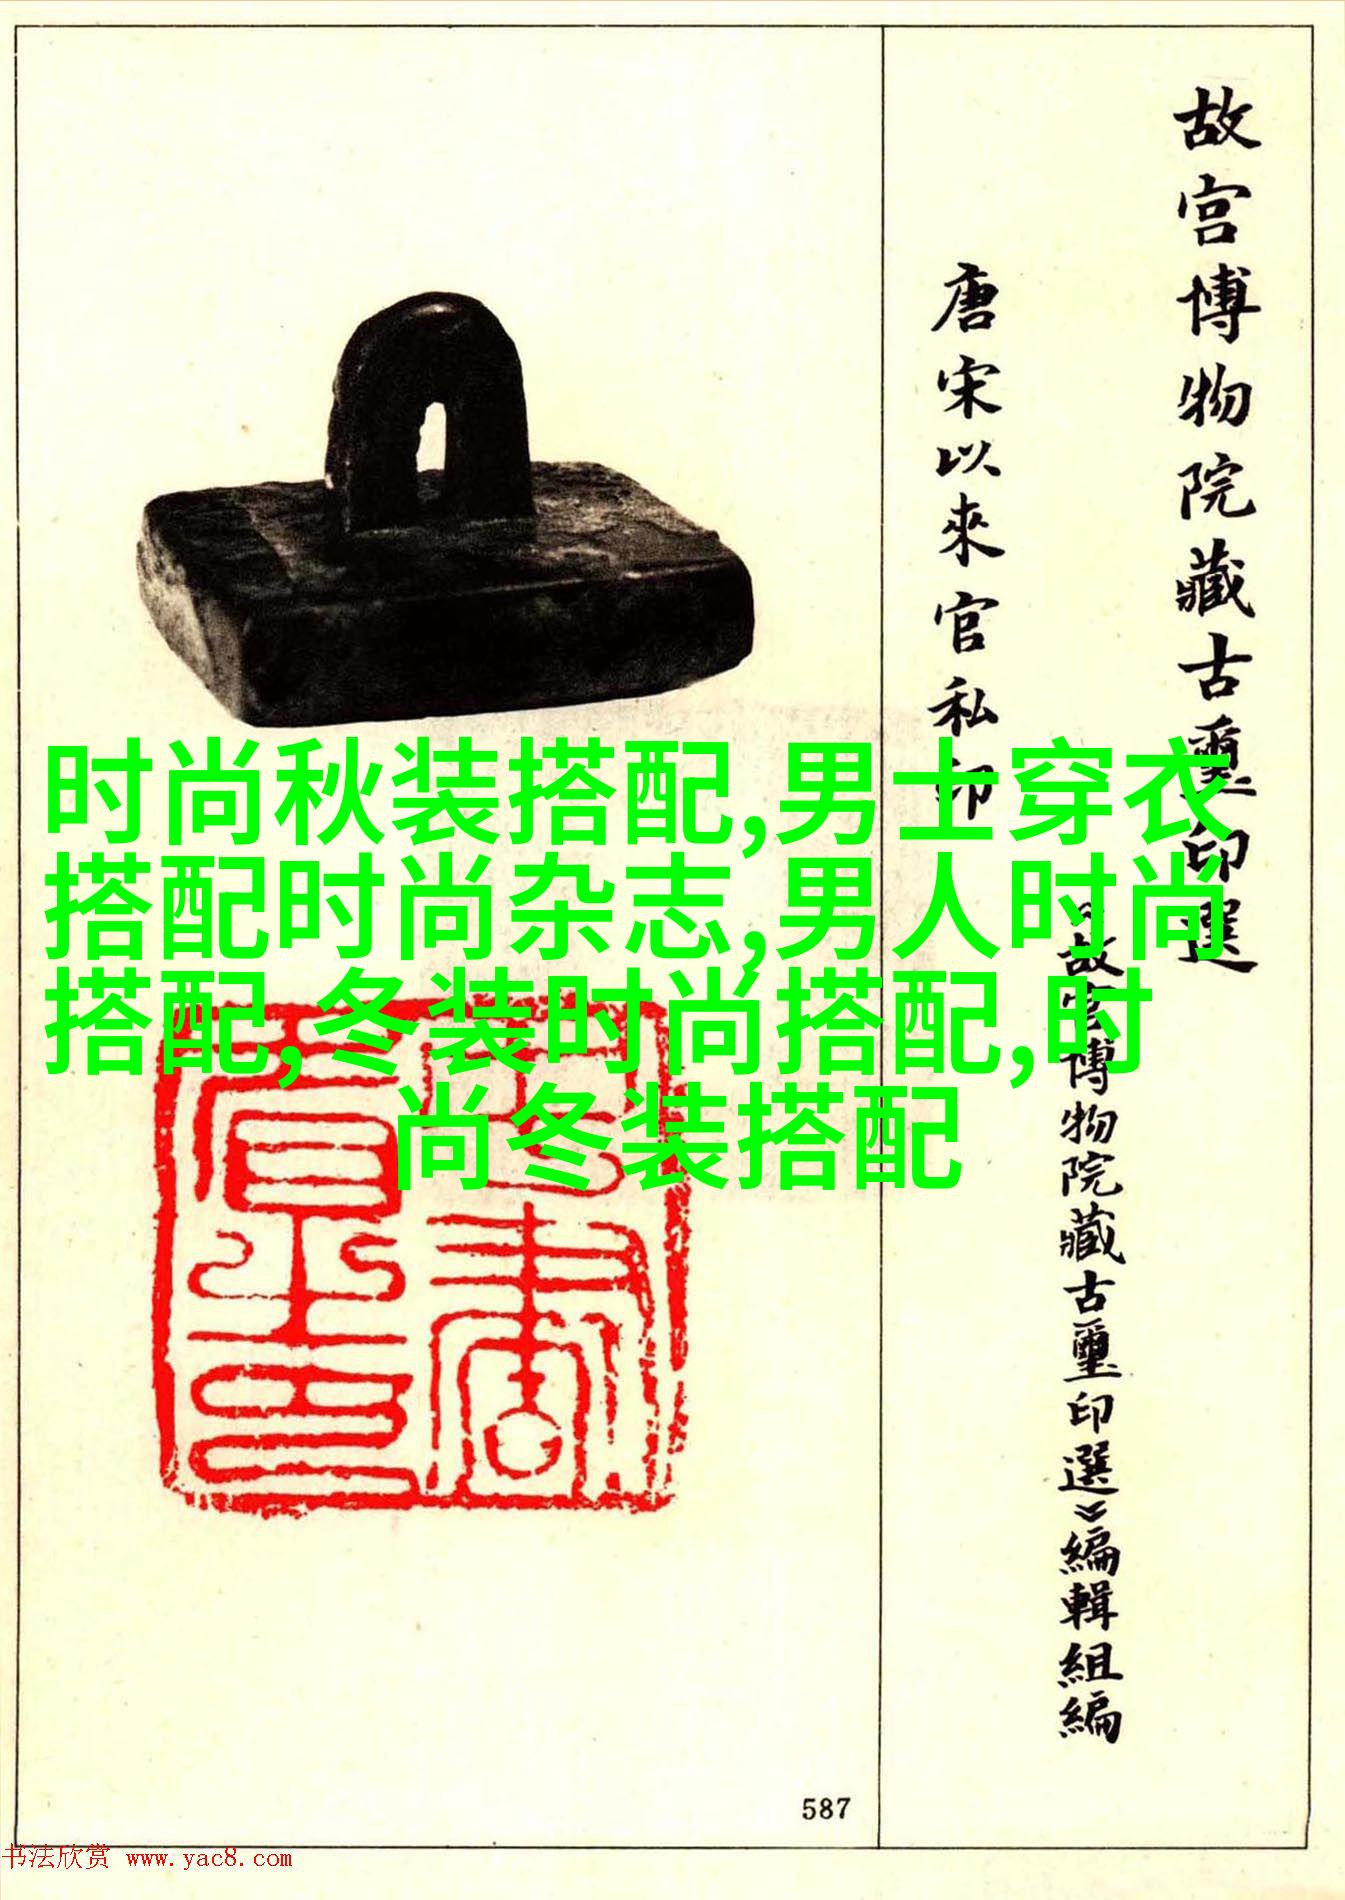 故宫博物院藏古璽印選
《故宫博物院藏古璽印選》編輯組編
唐宋以來官私印
时尚秋装搭配,男士穿衣
搭配时尚杂志,男人时尚
搭配,冬装时尚搭配,时
尚冬装搭配
587
书法欣赏 www.yac8.com